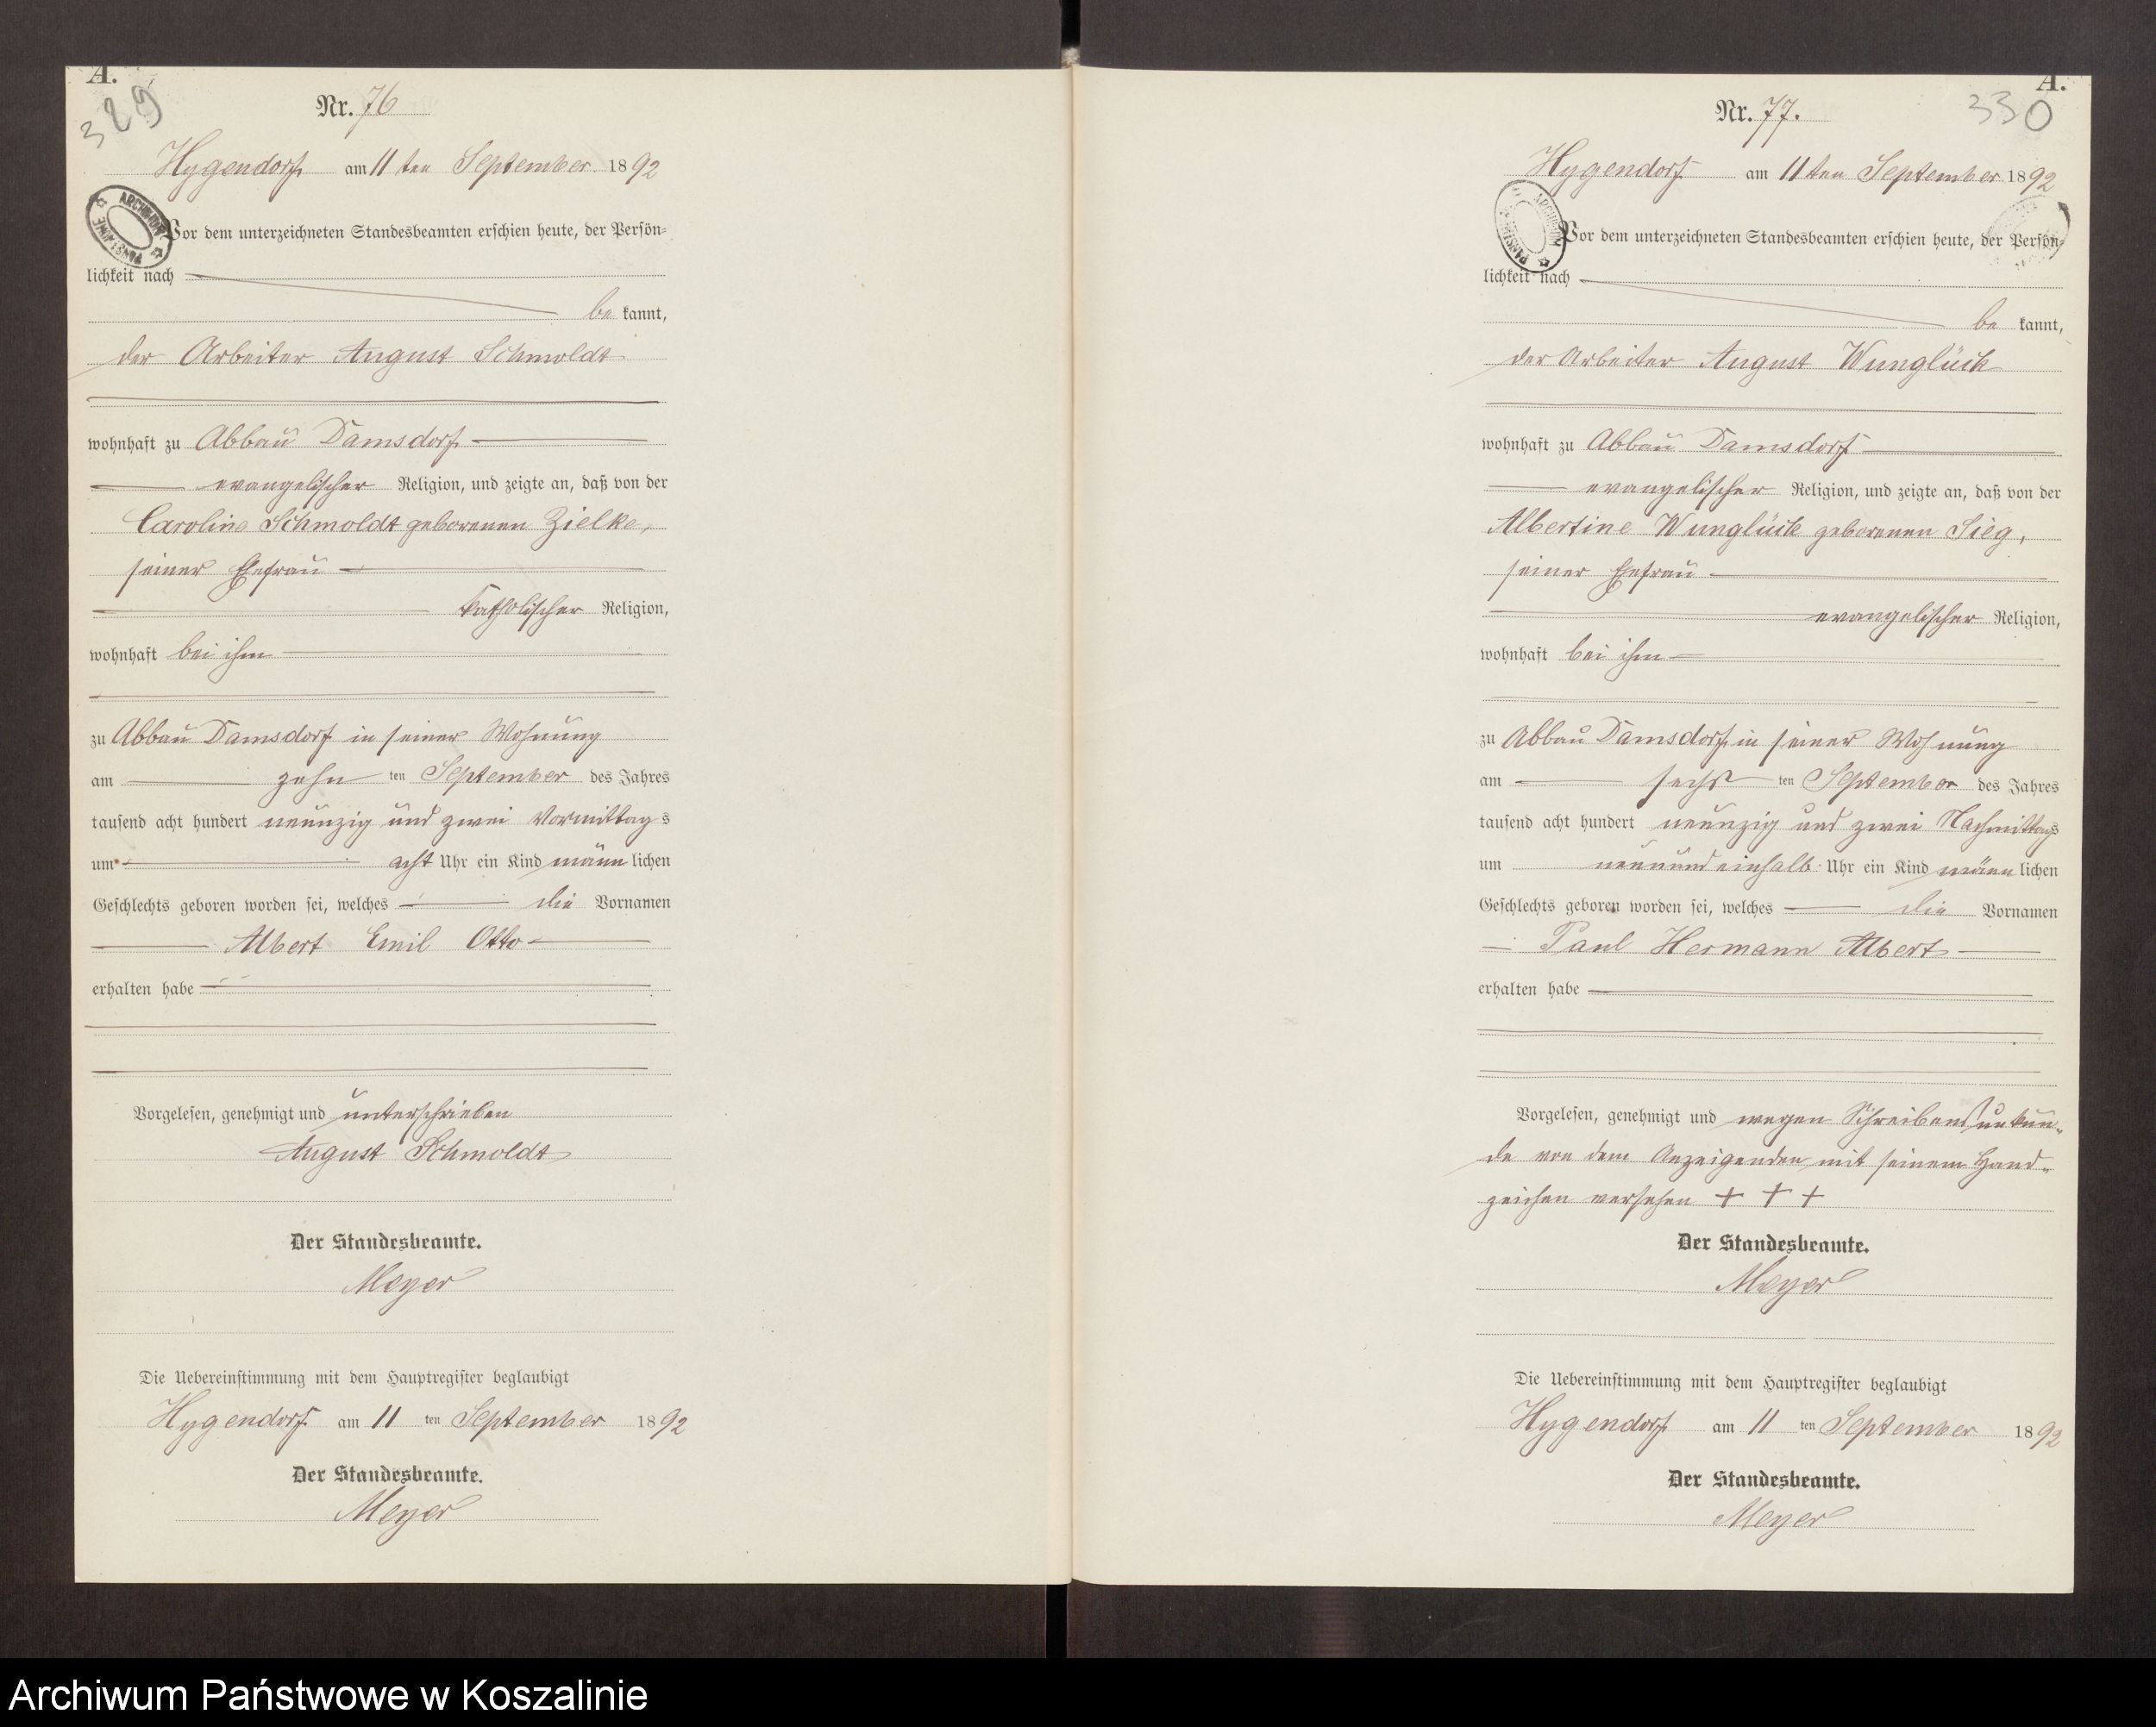 A.
329
Nr. 76
Hygendorf am 11 ten September 1892
Vor dem unterzeichneten Standesbeamten erschien heute, der Persön-
lichkeit nach
be kannt,
der Arbeiter August Schmoldt
wohnhaft zu Abbau Damsdorf
evangelischer Religion, und zeigte an, daß von der
Caroline Schmoldt geborenen Zielke,
seiner Ehefrau
katholischer Religion,
wohnhaft bei ihm
zu Abbau Damsdorf in seiner Wohnung
am zehn ten September des Jahres
tausend acht hundert neunzig und zwei Vormittags
um acht Uhr ein Kind männlichen
Geschlechts geboren worden sei, welches die Vornamen
Albert Emil Otto
erhalten habe
Vorgelesen, genehmigt und unterschrieben
August Schmoldt
Der Standesbeamte.
Meyer
Die Uebereinstimmung mit dem Hauptregister beglaubigt
Hygendorf am 11 ten September 1892
Der Standesbeamte.
Meyer
A.
330
Nr. 77.
Hygendorf am 11 ten September 1892
Vor dem unterzeichneten Standesbeamten erschien heute, der Persön-
lichkeit nach
be kannt,
der Arbeiter August Wunglück
wohnhaft zu Abbau Damsdorf
evangelischer Religion, und zeigte an, daß von der
Albertine Wunglück geborenen Sieg,
seiner Ehefrau
evangelischer Religion,
wohnhaft bei ihm
zu Abbau Damsdorf in seiner Wohnung
am sechs ten September des Jahres
tausend acht hundert neunzig und zwei Nachmittags
um neunundeinhalb Uhr ein Kind männlichen
Geschlechts geboren worden sei, welches die Vornamen
Paul Hermann Albert
erhalten habe
Vorgelesen, genehmigt und wegen Schreibensunkun-
de von dem Anzeigenden mit seinem Hand-
zeichen versehen + + +
Der Standesbeamte.
Meyer
Die Uebereinstimmung mit dem Hauptregister beglaubigt
Hygendorf am 11 ten September 1892
Der Standesbeamte.
Meyer
Archiwum Państwowe w Koszalinie